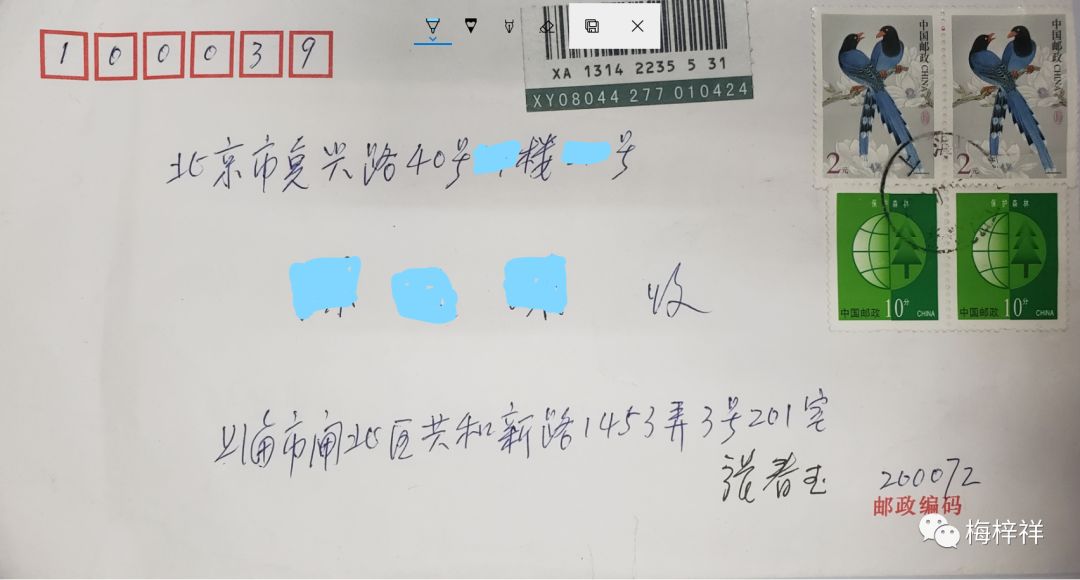 100039
XA 1314 2235 5 31
XY08044 277 010424
中国邮政 CHINA
2元
中国邮政 CHINA
2元
北京市复兴路40号 楼 号
保护森林
10分
中国邮政 CHINA
保护森林
10分
中国邮政 CHINA
收
上海市闸北区共和新路1453弄3号201室
张春玉 200072
邮政编码
梅梓祥